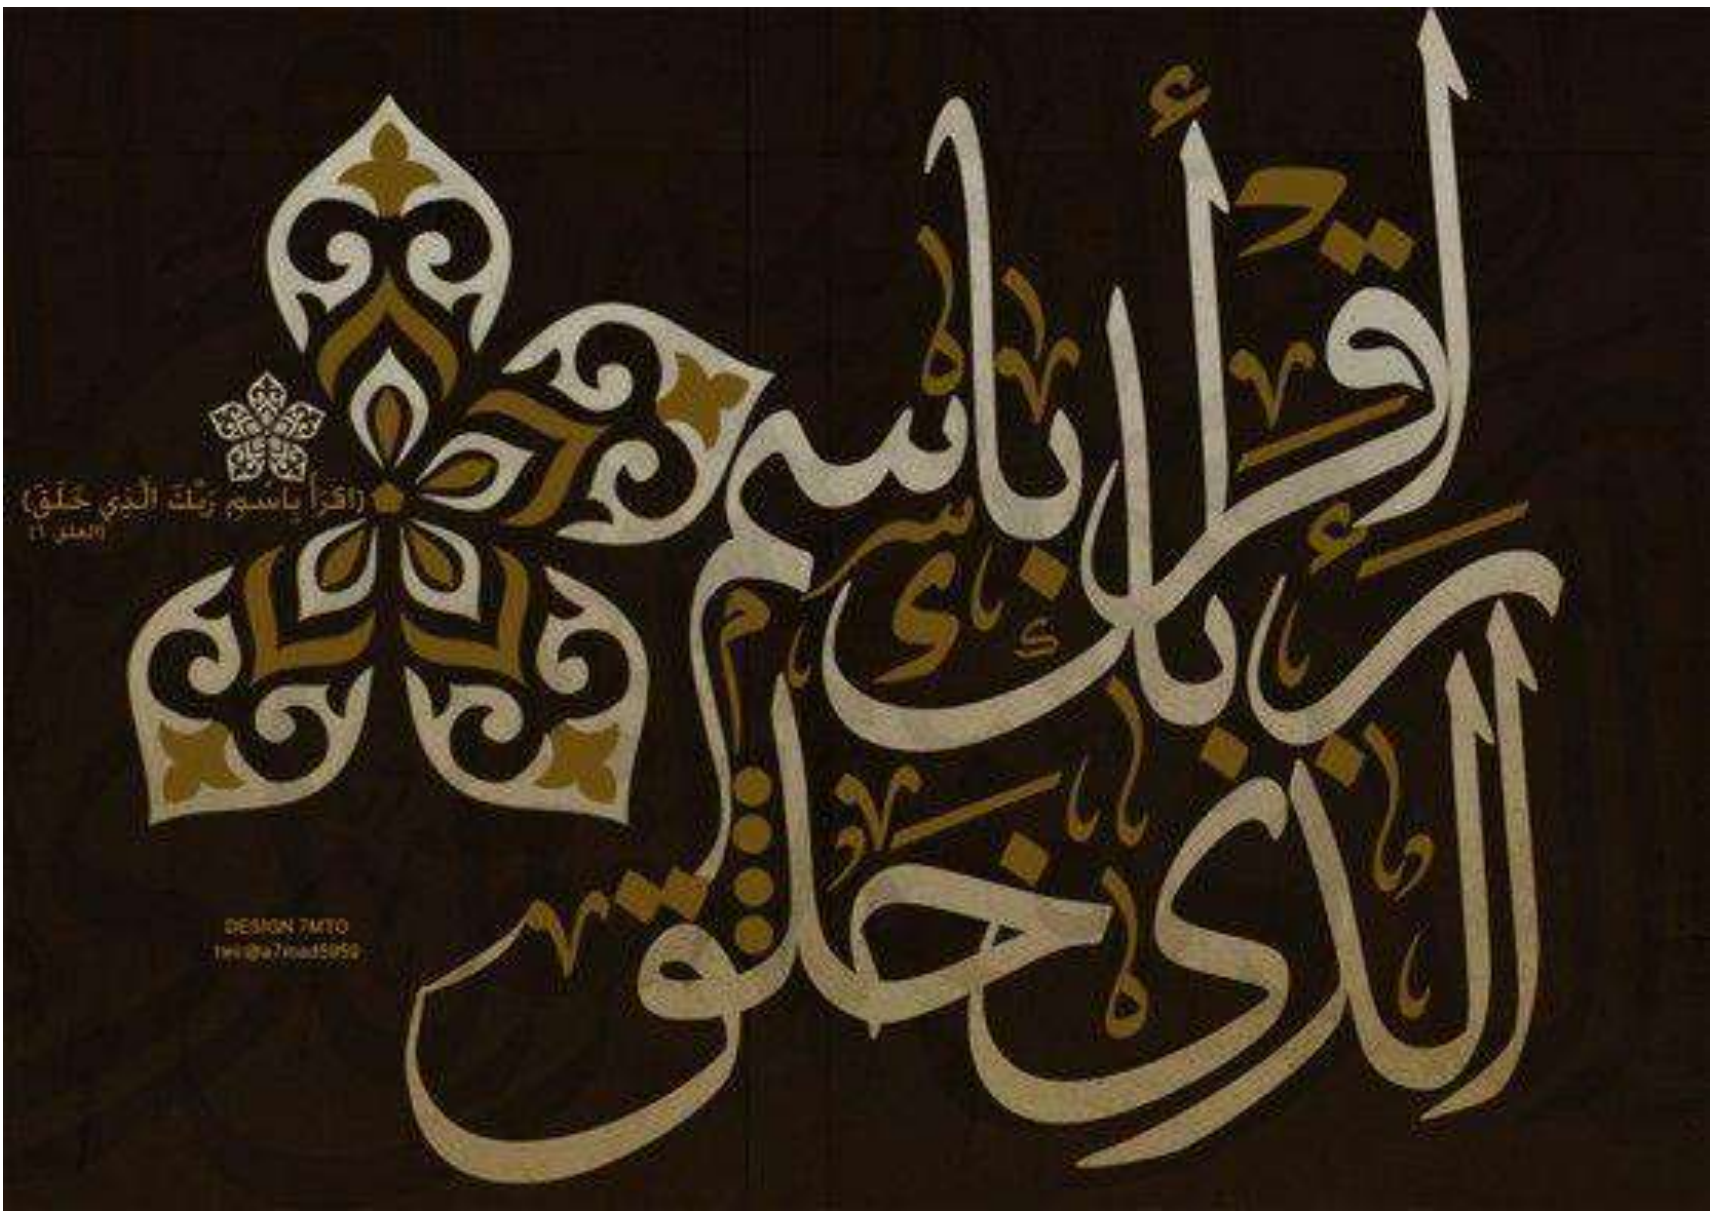 اقرأ باسم
ربك
الذي خلق
(اقْرَأْ بِاسْمِ رَبِّكَ الَّذِي خَلَقَ)
(العلق ١)
DESIGN 7MTO